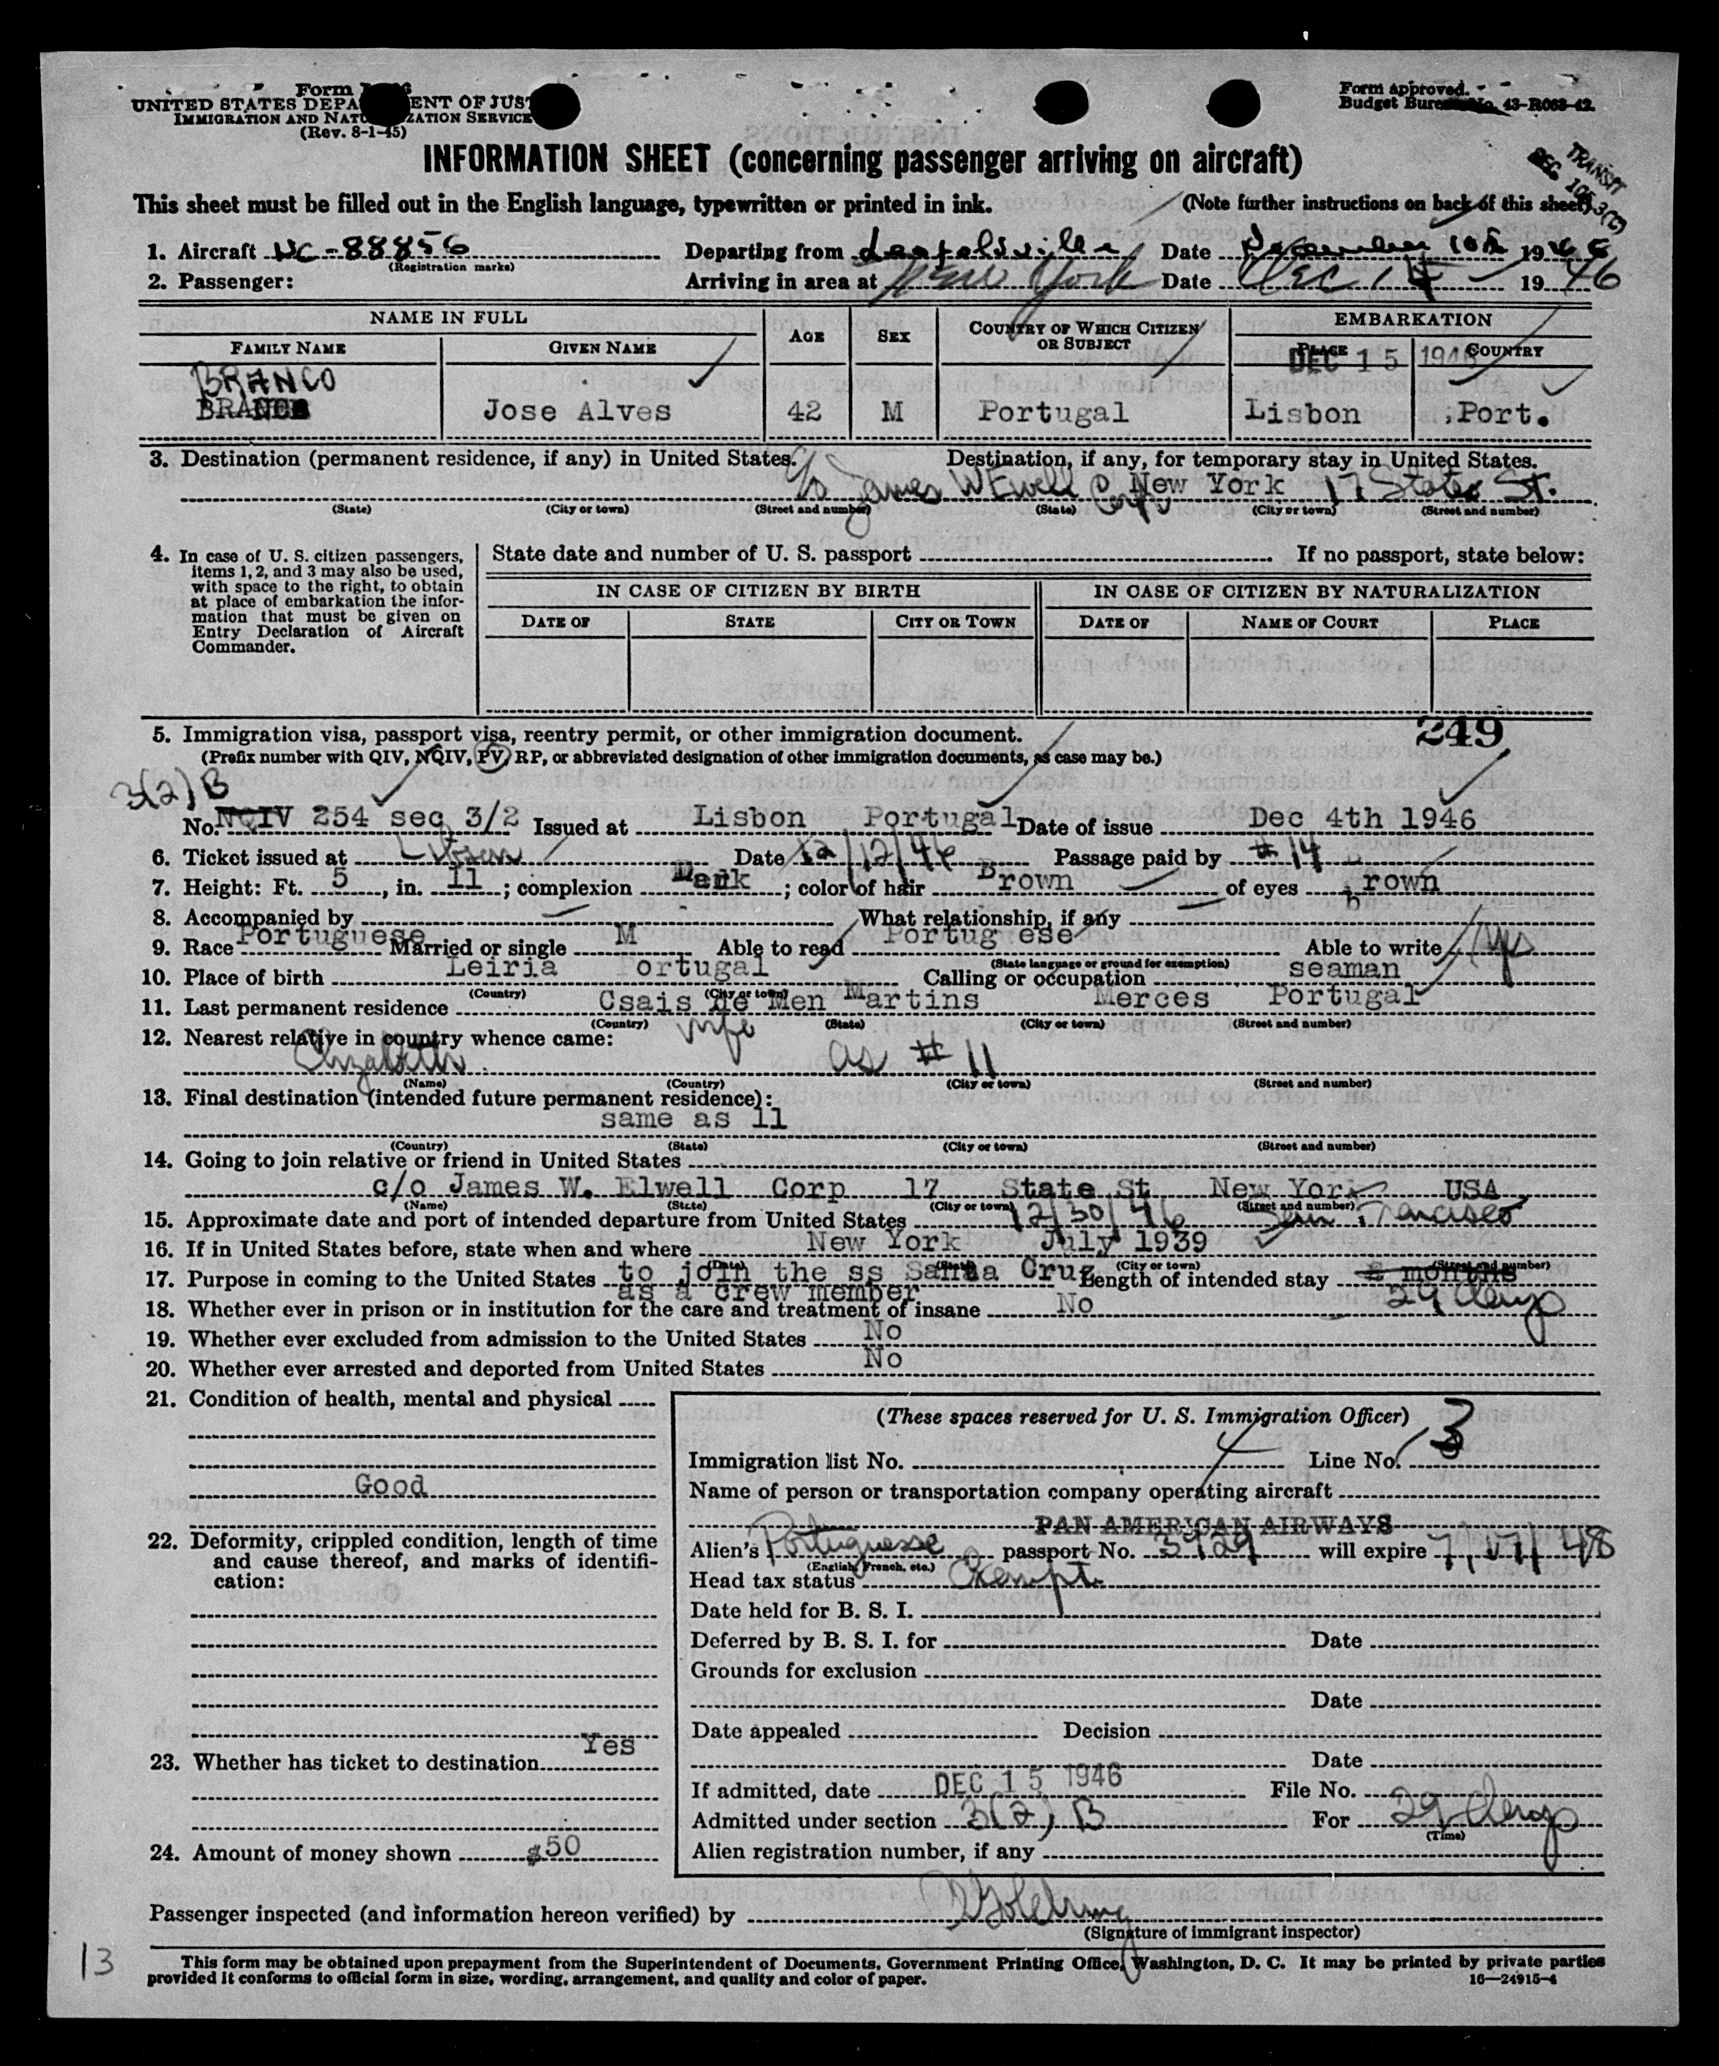 UNITED STATES DEPA ENT OF JUST
IMMIGRATION AND NATU ZATION SERVICE
(Rev. 8-1-45)
Form Approved.
Budget Bureau No. 43-R063-42.
TRANSIT
DEC
INFORMATION SHEET (concerning passenger arriving on aircraft)
This sheet must be filled out in the English language, typewritten or printed in ink. (Note further instructions on back of this sheet)
1. Aircraft NC-88856 Departing from Leopoldville Date December 10th 1946
(Registration marks)
2. Passenger: Arriving in area at New York Date Dec 1 1946
NAME IN FULL AGE SEX COUNTRY OF WHICH CITIZEN OR SUBJECT EMBARKATION
FAMILY NAME GIVEN NAME PLACE COUNTRY
DEC 15 1946
BRANCO
Jose Alves 42 M Portugal Lisbon Port.
3. Destination (permanent residence, if any) in United States. Destination, if any, for temporary stay in United States.
c/o James W Ewell Corp. New York 17 State St.
(State) (City or town) (Street and number) (State) (City or town) (Street and number)
4. In case of U. S. citizen passengers, items 1, 2, and 3 may also be used, with space to the right, to obtain at place of embarkation the information that must be given on Entry Declaration of Aircraft Commander.
State date and number of U. S. passport If no passport, state below:
IN CASE OF CITIZEN BY BIRTH IN CASE OF CITIZEN BY NATURALIZATION
DATE OF STATE CITY OR TOWN DATE OF NAME OF COURT PLACE
5. Immigration visa, passport visa, reentry permit, or other immigration document. 249
(Prefix number with QIV, NQIV, PV, RP, or abbreviated designation of other immigration documents, as case may be.)
3(2)B
No. NQIV 254 sec 3/2 Issued at Lisbon Portugal Date of issue Dec 4th 1946
6. Ticket issued at Lisbon Date 12/12/46 Passage paid by #14
7. Height: Ft. 5, in. 11; complexion Dark; color of hair Brown of eyes brown
8. Accompanied by What relationship, if any
9. Race Portuguese Married or single M Able to read Portug ese Able to write yes
(State language or ground for exemption)
10. Place of birth Leiria Portugal Calling or occupation seaman
(Country) (City or town)
11. Last permanent residence Csais de Men Martins Merces Portugal
(Country) (State) (City or town) (Street and number)
12. Nearest relative in country whence came: wife
Elizabeth as #11
(Name) (Country) (City or town) (Street and number)
13. Final destination (intended future permanent residence):
same as 11
(Country) (State) (City or town) (Street and number)
14. Going to join relative or friend in United States
c/o James W. Elwell Corp 17 State St New York USA
(Name) (State) (City or town) (Street and number)
15. Approximate date and port of intended departure from United States 12/30/46 San Francisco
16. If in United States before, state when and where New York July 1939
(Date) (State) (City or town) (Street and number)
17. Purpose in coming to the United States to join the ss Santa Cruz Length of intended stay 2 months
as a crew member 29 days
18. Whether ever in prison or in institution for the care and treatment of insane No
19. Whether ever excluded from admission to the United States No
20. Whether ever arrested and deported from United States No
21. Condition of health, mental and physical
Good
22. Deformity, crippled condition, length of time and cause thereof, and marks of identification:
23. Whether has ticket to destination Yes
24. Amount of money shown $50
(These spaces reserved for U. S. Immigration Officer)
Immigration list No. 4 Line No. 13
Name of person or transportation company operating aircraft
PAN AMERICAN AIRWAYS
Alien's Portuguese passport No. 3929 will expire 7/17/48
(English, French, etc.)
Head tax status Exempt
Date held for B. S. I.
Deferred by B. S. I. for Date
Grounds for exclusion
Date
Date appealed Decision
Date
If admitted, date DEC 15 1946 File No.
Admitted under section 3(2) B For 29 days
(Time)
Alien registration number, if any
Passenger inspected (and information hereon verified) by
(Signature of immigrant inspector)
13
This form may be obtained upon prepayment from the Superintendent of Documents, Government Printing Office, Washington, D. C. It may be printed by private parties
provided it conforms to official form in size, wording, arrangement, and quality and color of paper. 16—24915-4